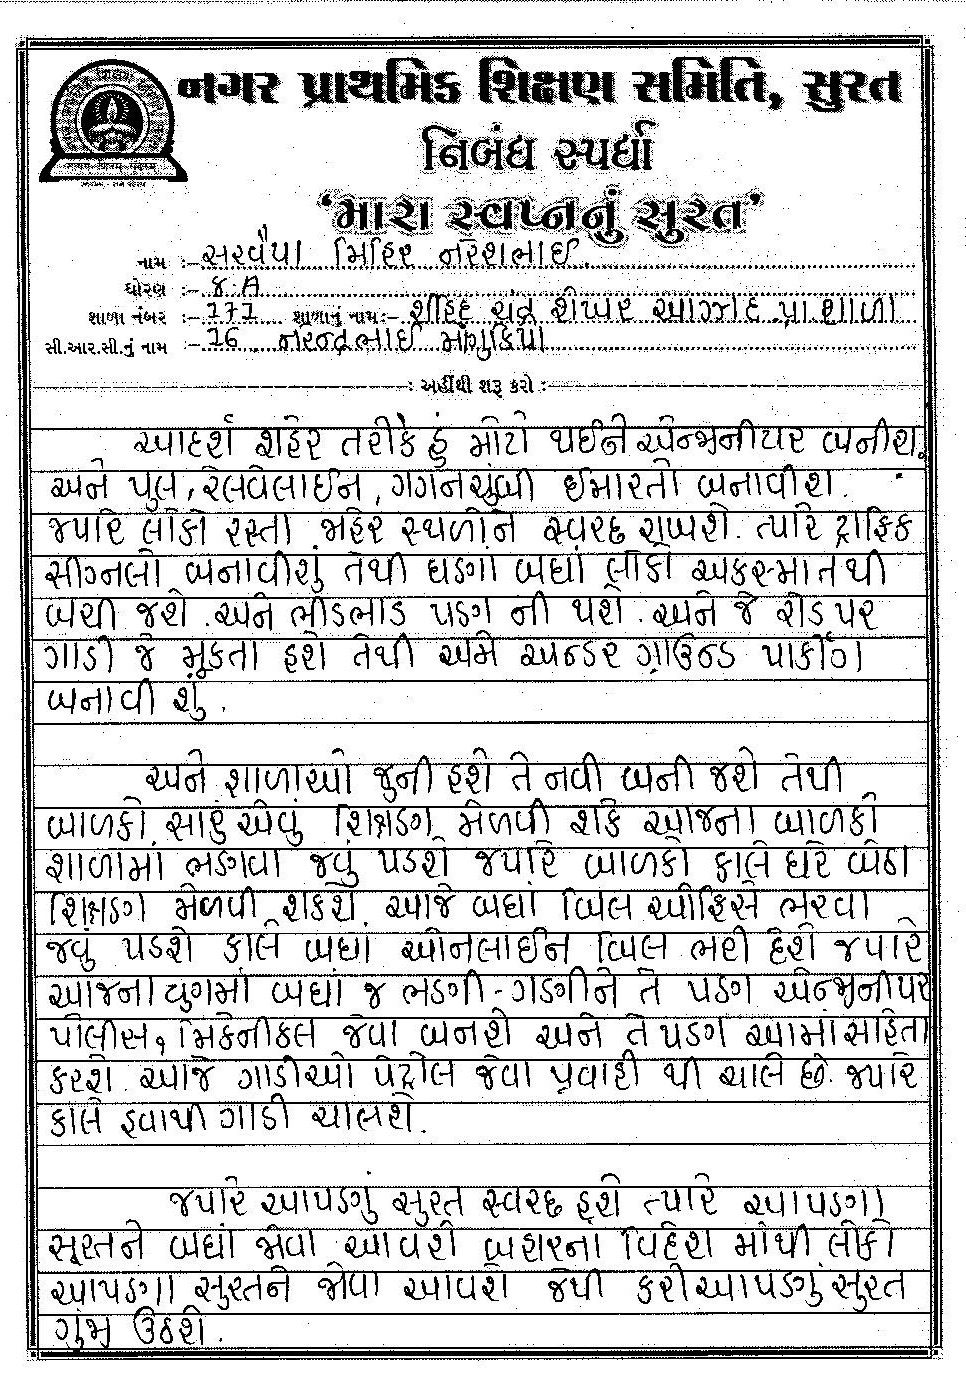 નગર પ્રાથમિક શિક્ષણ સમિતિ, સુરત
નિબંધ સ્પર્ધા
‘મારા સ્વપ્નનું સુરત’
નામ :- સરવૈયા મિહિર નરેશભાઈ.
ધોરણ :- ૪.A
શાળા નંબર :- 177 શાળાનું નામ :- શહિદ ચંદ્ર શેખર આઝાદ પ્રા શાળા
સી.આર.સી.નું નામ :- 16 નરેન્દ્રભાઈ માંગુકિયા
:- અહીંથી શરૂ કરો :-
આદર્શ શહેર તરીકે હું મોટો થઈને એન્જીનીયર બનીશ.
અને પુલ, રેલવેલાઈન, ગગનચુંબી ઈમારતો બનાવીશ.
જયારે લોકો રસ્તા જાહેર સ્થળોને સ્વચ્છ રાખશે. ત્યારે ટ્રાફિક
સીગ્નલો બનાવીશું તેથી ઘણા બધાં લોકો અકસ્માતથી
બચી જશે. અને ભીડભાડ પણ ની થશે. અને જે રોડ પર
ગાડી જે મૂકતા હશે તેથી અમે અન્ડર ગ્રાઉન્ડ પાર્કીંગ
બનાવી શું.
અને શાળાઓ જુની હશે તે નવી બની જશે તેથી
બાળકો સારું એવું શિક્ષણ મેળવી શકે આજના બાળકો
શાળામાં ભણવા જવું પડશે જયારે બાળકો કાલે ઘરે બેઠા
શિક્ષણ મેળવી શકશે. આજે બધાં બિલ ઓફિસે ભરવા
જવું પડશે કાલે બધાં ઓનલાઈન બિલ ભરી દેશે જયારે
આજના યુગમાં બધાં જ ભણી-ગણીને તે પણ એન્જીનીયર
પોલીસ, મિકેનીકલ જેવા બનશે અને તે પણ આમાં સહિતા
કરશે. આજે ગાડીઓ પેટ્રોલ જેવા પ્રવાહી થી ચાલે છે. જયારે
કાલે હવાથી ગાડી ચાલશે.
જયારે આપણું સુરત સ્વચ્છ હશે ત્યારે આપણા
સૂરતને બધાં જોવા આવશે બહારના વિદેશ માંથી લોકો
આપણા સુરતને જોવા આવશે જેથી કરી આપણું સુરત
ગુંજી ઉઠશે.